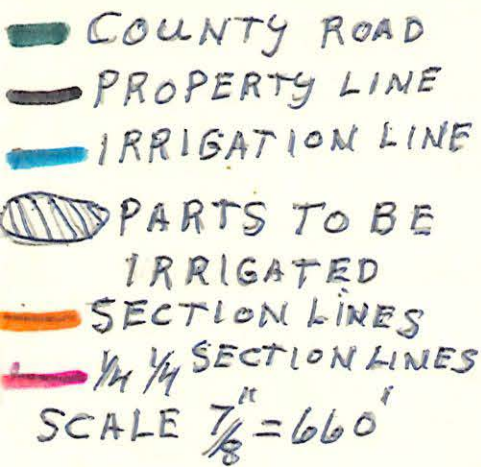 COUNTY ROAD
PROPERTY LINE
IRRIGATION LINE
PARTS TO BE
IRRIGATED
SECTION LINES
1/4 1/4 SECTION LINES
SCALE 7/8" = 660'